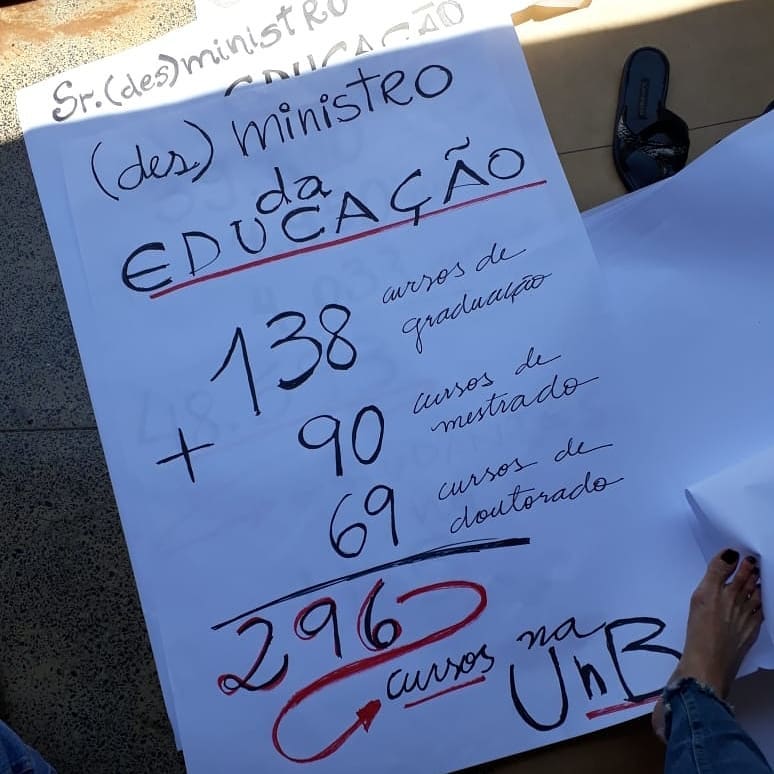 Sr. (des) ministro
EDUCAÇÃO
(des) ministro
da
EDUCAÇÃO
138 cursos de
graduação
+ 90 cursos de
mestrado
69 cursos de
doutorado
296
cursos na
UnB